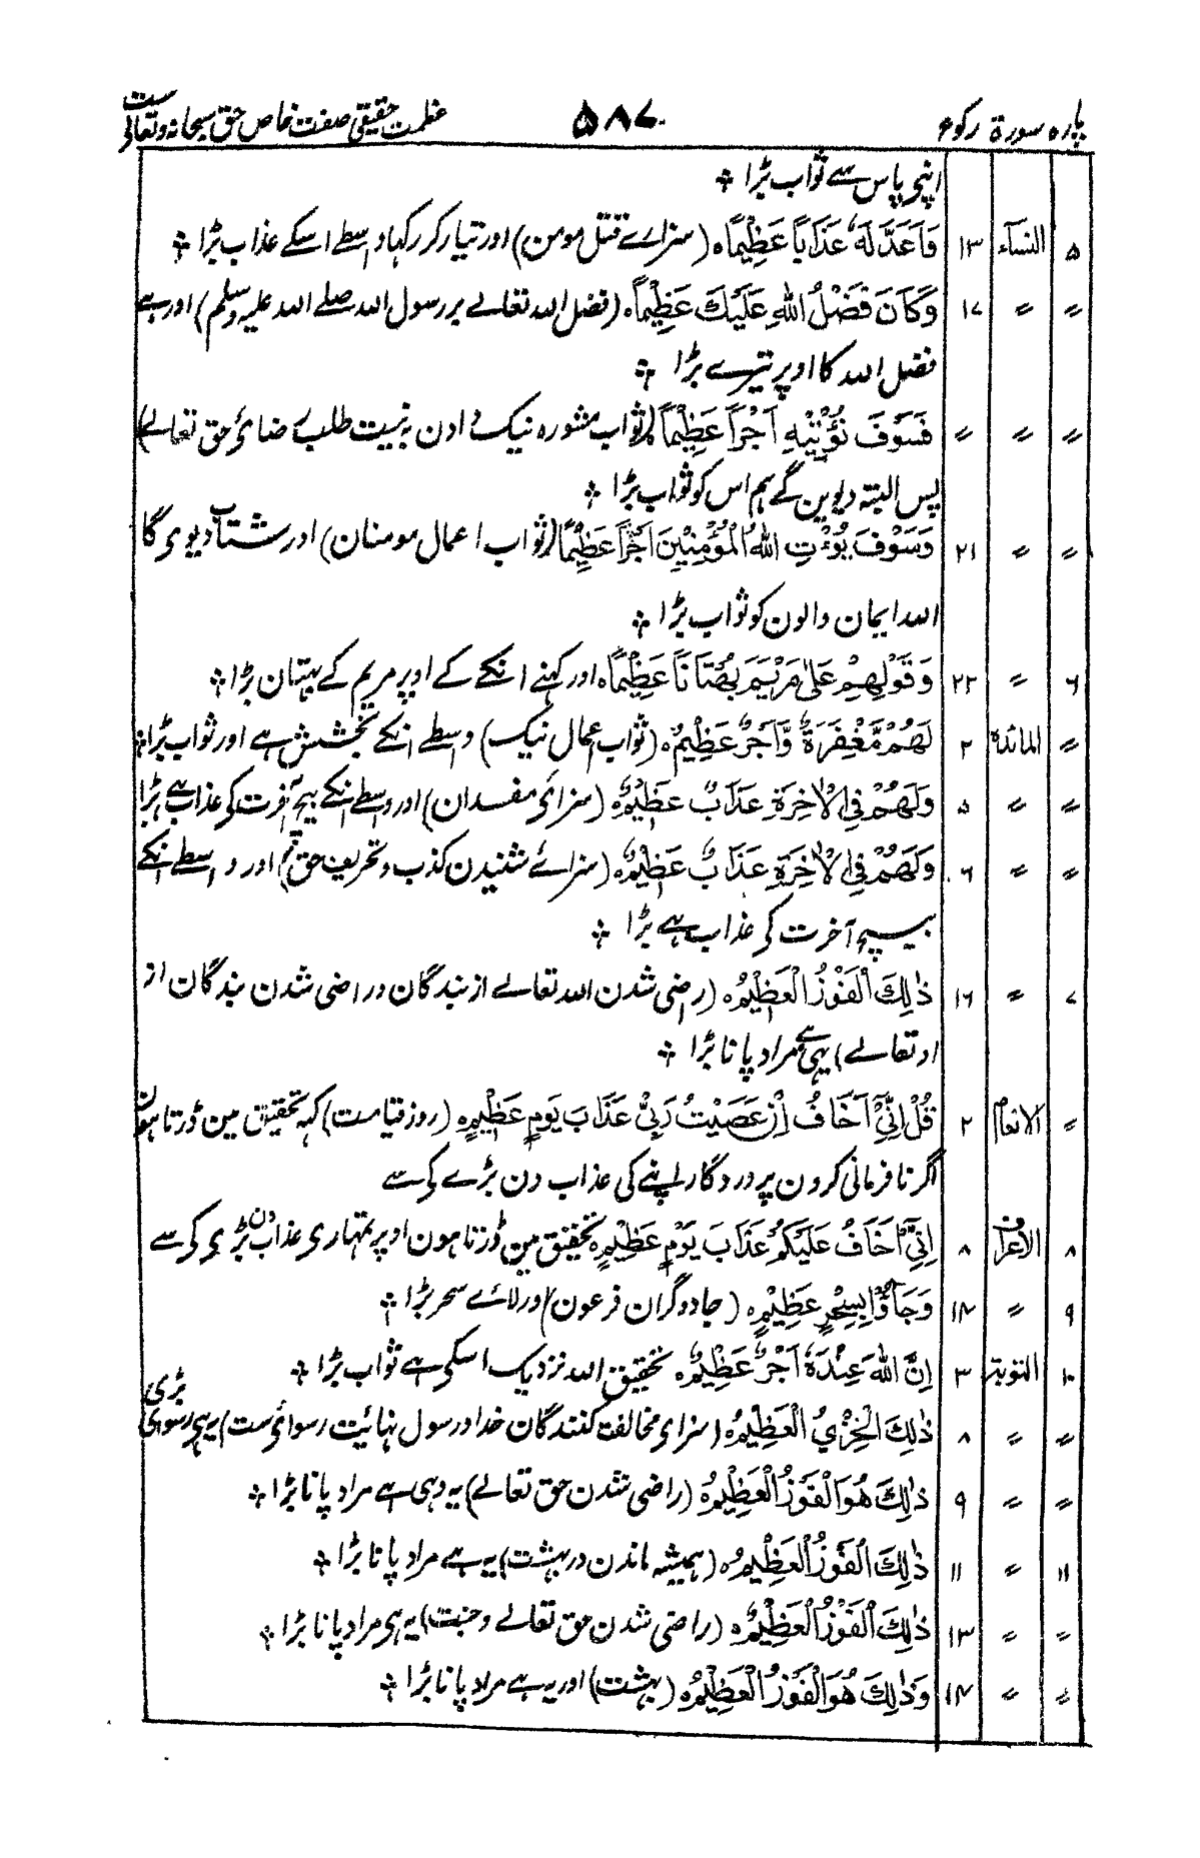 پارہ سورۃ رکوع ۵۸۷ عظمت حقیقی صفت خاص حق سبحانہ وتعالی ست
اپنی پاس سے ثواب بڑا ؞
۵ النساء ۱۳ وَاَعَدَّ لَهٗ عَذَابًا عَظِيْمًا ہ (سزاے قتل مومن) اور تیار کر رکہا واسطے اسکے عذاب بڑا ؞
〃 〃 ۱۷ وَكَانَ فَضْلُ اللهِ عَلَيْكَ عَظِيْمًا ہ (فضل اللہ تعالے بر رسول اللہ صلے اللہ علیہ وسلم) اور ہے
فضل اللہ کا اوپر تیرے بڑا ؞
〃 〃 〃 فَسَوْفَ نُؤْتِيْهِ اَجْرًا عَظِيْمًا (ثواب مشورہ نیک دادن بہ نیت طلب رضائ حق تعالے)
پس البتہ دیوین گے ہم اس کو ثواب بڑا ؞
〃 〃 ۲۱ وَسَوْفَ يُؤْتِ اللهُ الْمُؤْمِنِيْنَ اَجْرًا عَظِيْمًا (ثواب اعمال مومنان) اور شتاب دیوی گا
اللہ ایمان والون کو ثواب بڑا ؞
۶ 〃 ۲۲ وَقَوْلِهِمْ عَلٰى مَرْيَمَ بُهْتَانًا عَظِيْمًا ہ اور کہنے انکے کے اوپر مریم کے بہتان بڑا ؞
〃 المائدۃ ۲ لَهُمْ مَّغْفِرَةٌ وَّاَجْرٌ عَظِيْمٌ ہ (ثواب عمال نیک) واسطے انکے بخشش ہے اور ثواب بڑا ؞
〃 〃 ۵ وَلَهُمْ فِى الْاٰخِرَةِ عَذَابٌ عَظِيْمٌ ہ (سزائ مفسدان) اور واسطے انکے بیچ آخرت کی عذاب ہے بڑا
〃 〃 ۶ وَلَهُمْ فِى الْاٰخِرَةِ عَذَابٌ عَظِيْمٌ ہ (سزائے شنیدن کذب و تحریف حق) اور واسطے انکے
بیچ آخرت کی عذاب ہے بڑا ؞
۷ 〃 ۱۶ ذٰلِكَ الْفَوْزُ الْعَظِيْمُ ہ (رضی شدن اللہ تعالے از بندگان و راضی شدن بندگان از
او تعالے) یہی ہے مراد پانا بڑا ؞
〃 الانعام ۲ قُلْ اِنِّيْٓ اَخَافُ اِنْ عَصَيْتُ رَبِّيْ عَذَابَ يَوْمٍ عَظِيْمٍ ہ (روز قیامت) کہہ تحقیق مین ڈرتا ہون
اگر نافرمانی کرون پروردگار اپنے کی عذاب دن بڑے کی سے
۸ الاعراف ۸ اِنِّيْٓ اَخَافُ عَلَيْكُمْ عَذَابَ يَوْمٍ عَظِيْمٍ ہ تحقیق مین ڈرتا ہون اوپر تمہاری عذاب دن بڑی کی سے
۹ 〃 ۱۴ وَجَآءُوْ بِسِحْرٍ عَظِيْمٍ ہ (جادوگران فرعون) اور لائے سحر بڑا ؞
۱۰ التوبۃ ۳ اِنَّ اللهَ عِنْدَهٗٓ اَجْرٌ عَظِيْمٌ ہ تحقیق اللہ نزدیک اسکی ہے ثواب بڑا ؞
〃 〃 ۸ ذٰلِكَ الْخِزْيُ الْعَظِيْمُ ہ (سزای مخالفت کنندگان خدا ورسول نہائیت رسوائ ست) یہ ہی رسوائ بڑی
〃 〃 ۹ ذٰلِكَ هُوَ الْفَوْزُ الْعَظِيْمُ ہ (راضی شدن حق تعالے) یہ وہی ہے مراد پانا بڑا ؞
۱۱ 〃 ۱۱ ذٰلِكَ الْفَوْزُ الْعَظِيْمُ ہ (ہمیشہ ماندن در بہشت) یہ ہے مراد پانا بڑا ؞
〃 〃 ۱۳ ذٰلِكَ الْفَوْزُ الْعَظِيْمُ ہ (راضی شدن حق تعالے و جنت) یہ ہی مراد پانا بڑا ؞
〃 〃 ۱۴ وَذٰلِكَ هُوَ الْفَوْزُ الْعَظِيْمُ ہ (بہشت) اور یہ ہے مراد پانا بڑا ؞